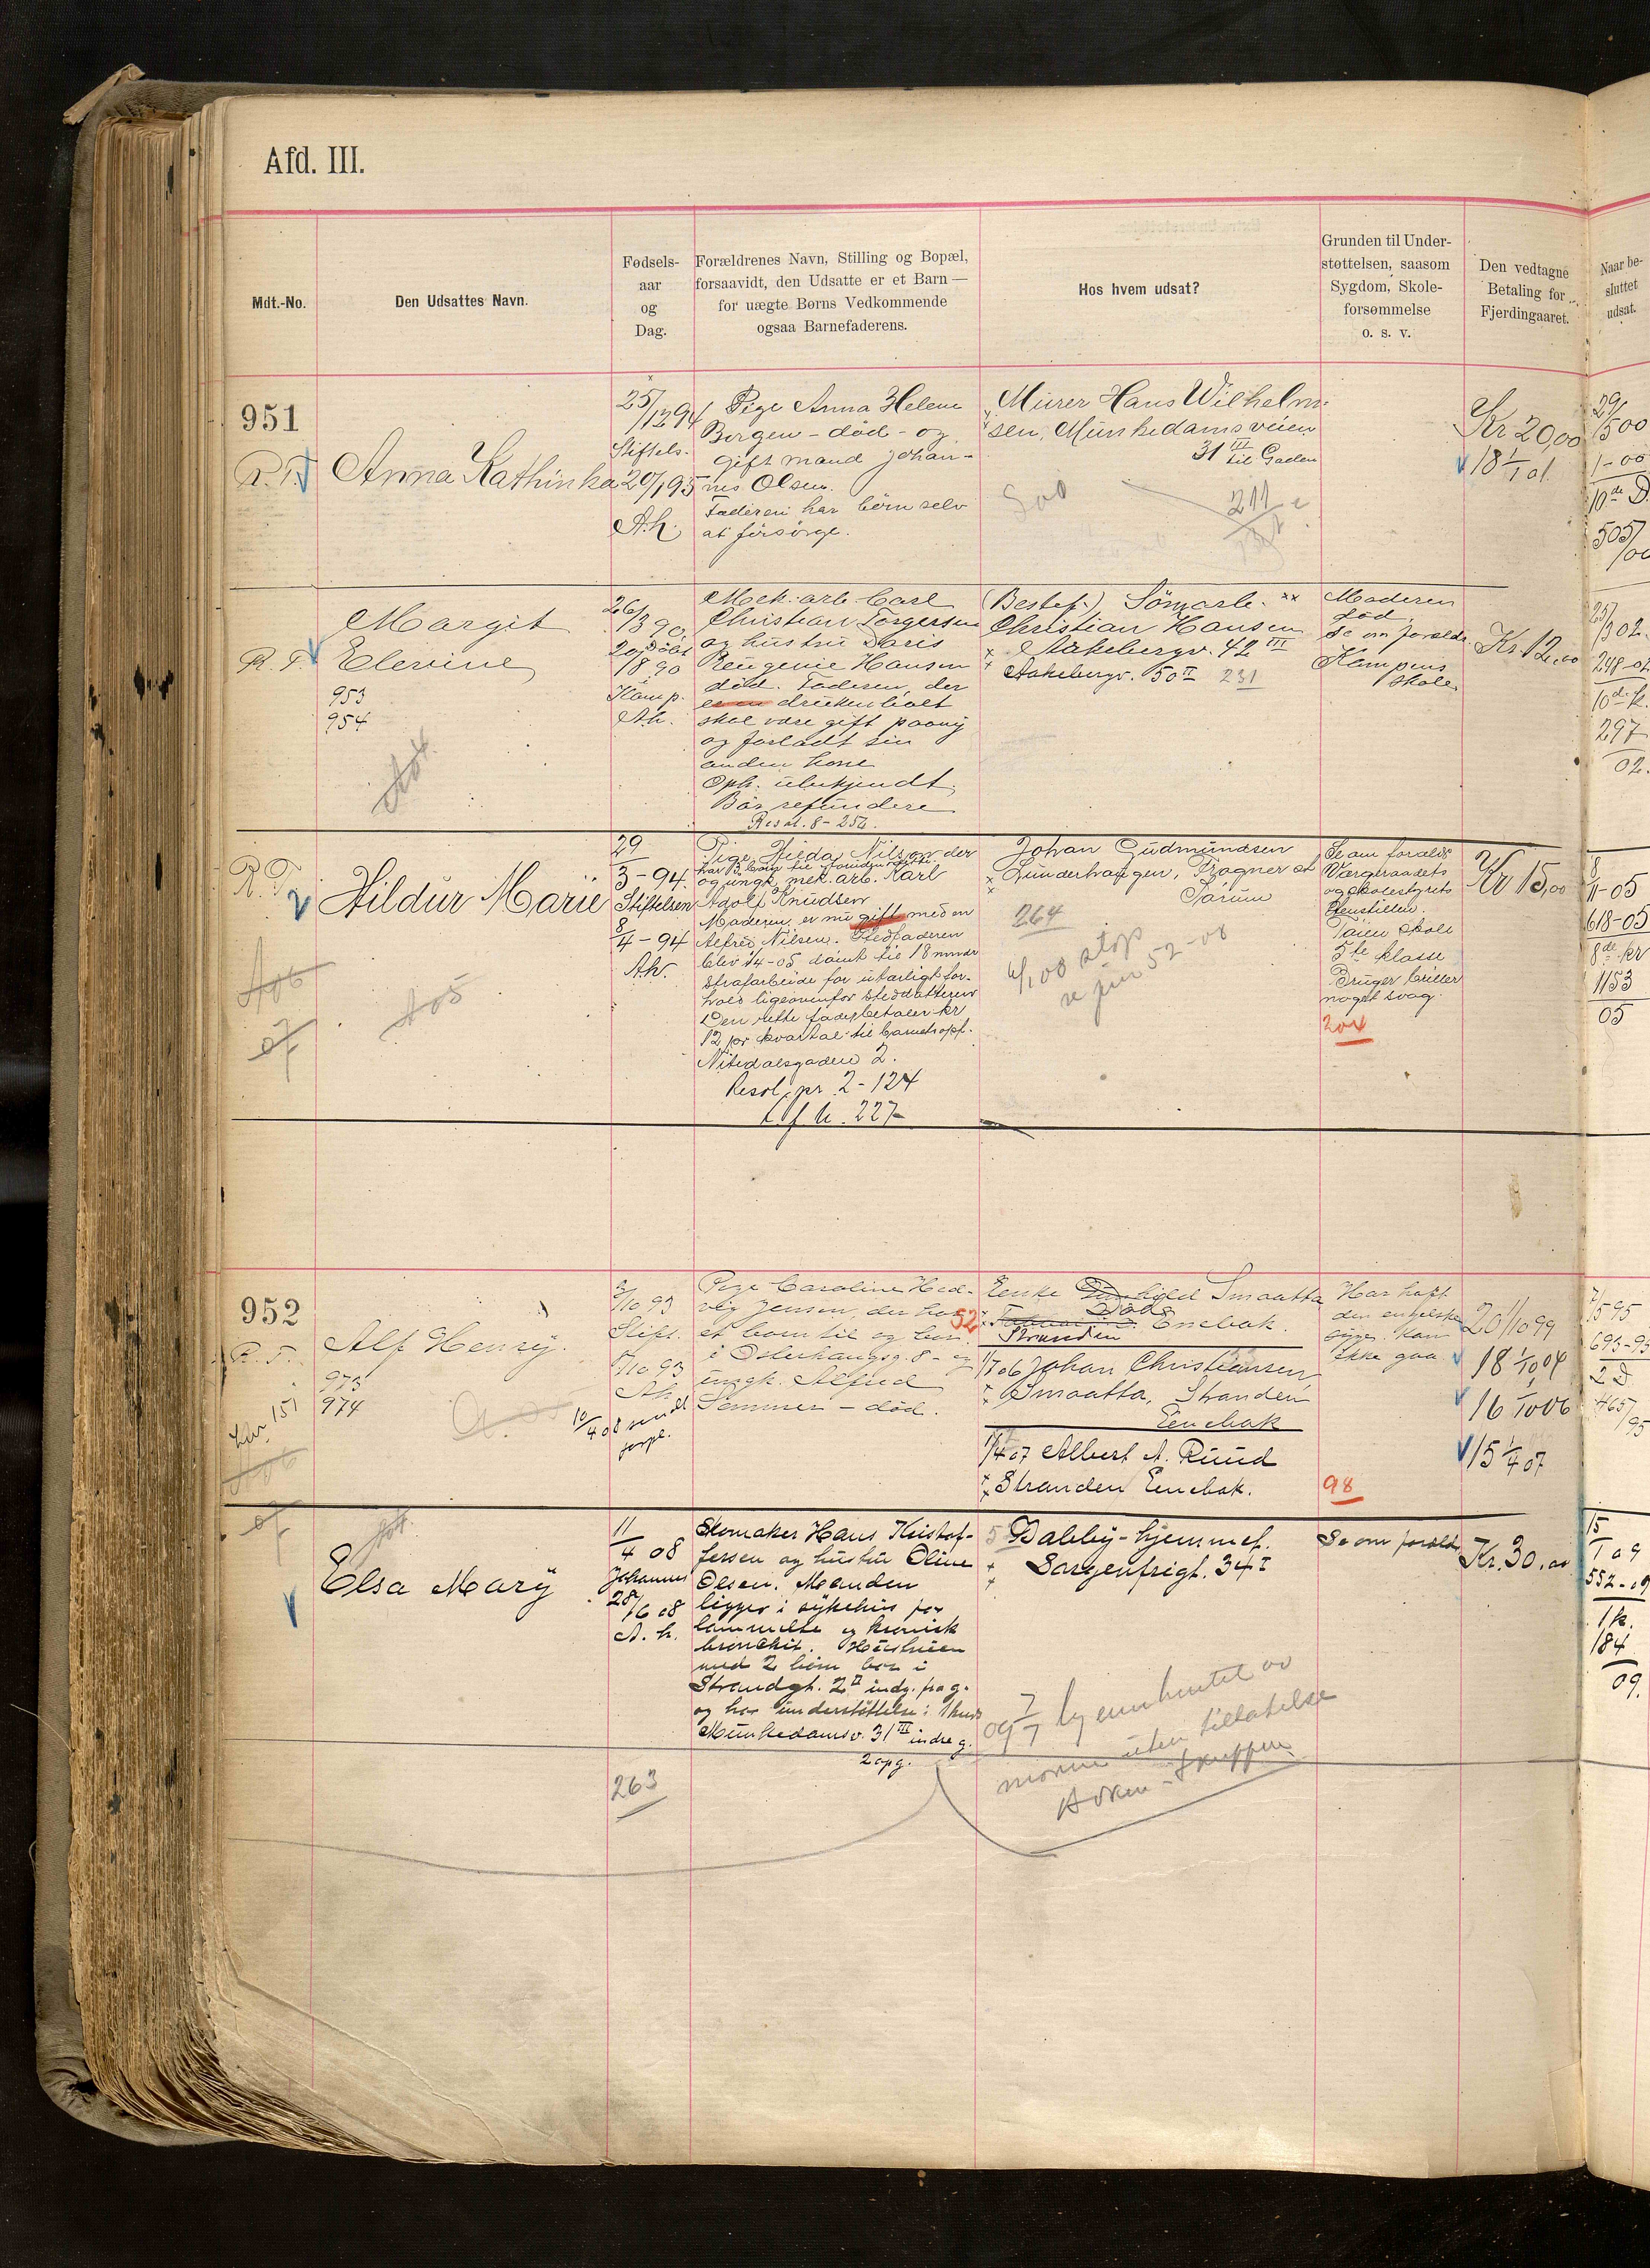 Afd. III.
Mdt.-No.
Den Udsattes Navn.
Fødsels-
aar
og
Dag.
Forældrenes Navn, Stilling og Bopæl,
forsaavidt, den Udsatte er et Barn —
for uægte Børns Vedkommende
ogsaa Barnefaderens.
Hos hvem udsat?
Grunden til Under-
støttelsen, saasom
Sygdom, Skole-
forsømmelse
o. s. v.
Den vedtagne
Betaling for
Fjerdingaaret.
Naar be-
sluttet
udsat.
951
R. T.
Anna Kathinka
25/12 94
Stiftels.
20/1 95
A.k.
Pige Anna Helene
Borgen - død - og
gift mand Johan-
nes Olsen.
Faderen har børn selv
at forsørge.
Murer Hans Wilhelm-
sen, Munkedamsveien
31 III til Gaden
211
Kr 20,00
18 1/1 01
29/5 00
1-00
10de D.
505/00
R. T.
Margit
Elevine
953
954
26/3 90
Døbt
20/8 90
Kamp.
A.k.
Mek. arb. Carl
Christian Torgersen
og hustru Doris
Eugenie Hansen
død. Faderen, der
er en drukkenbolt
skal være gift paany
og forladt sin
anden kone
Oph. ubekjendt.
Bør refundere
Resol. 8-256.
(Bestef.) Sömarb.
Christian Hansen
Aakebergv. 42 III
Aakebergv. 50 II 231
Moderen
død.
Se om foræld.
Kampens
skole
Kr 12,00
25/3 02
248-02
10de k.
297
02.
R. T.
Hildur Marie
29
3-94.
Stiftelsen
8
4-94
A.k.
Pige Hilda Nilsen der
og ungk. mek. arb. Karl
Adolf Knudsen
Moderen er nu gift med en
Alfred Nilsen. Stedfaderen
blev 14-05 dømt til 18 mndr
strafarbeide for uterligt for-
hold ligeoverfor steddatteren
Den rette fader betaler kr
12 pr kvartal til barnets opf.
Nitedalsgaden 2.
Resol. pr 2-124
227
Johan Gudmundsen
Sørum
264
stop
52-08
Se om foræld.
Værgeraadets
og skolestyrets
Tøien skole
5te klasse
Bruger briller
noget svag.
204
Kr 15,00
8
11-05
618-05
8de kr
1153
05
952
R. T.
Alf Henry.
973
974
2/10 93
Stift.
/10 93
A.k.
10/4 08 sendt
forpl.
Pige Caroline Hed-
vig Jensen, der har
et barn til og bor
i Osterhausg. 8 - og
ungk. Alfred
Sommer - død.
52
Enke Smaatta
Død
Enebak.
Stranden
1/7 06 Johan Christiansen
Smaatta, Stranden
Enebak
1/4 07 Albert A. Ruud
Stranden Enebak.
Har haft
den engelske
syge. Kan
ikke gaa.
98
20 1/10 99
18 1/10 04
16 1/10 06
15 1/4 07
7/5 95
693-95
2 D.
465/95
Elsa Mary
11
4 08
Johannes
28/6 08
A. k.
Skomaker Hans Kristof-
fersen og hustru Oline
Olsen. Manden
ligger i sykehus for
lammelse og kronisk
bronchit. Hustruen
med 2 børn bor i
Strandgt. 2 II indg. fra g.
og har understøttelse i
Munkedamsv. 31 III indre g.
2 opg.
263
Daleby-hjemmef.
Sorgenfrigt. 34 I
09 7/7 hjemhentet av
moren uten tillatelse
Se om foræld.
Kr. 30.00
15
1 09
552-09
1 k.
184
09.